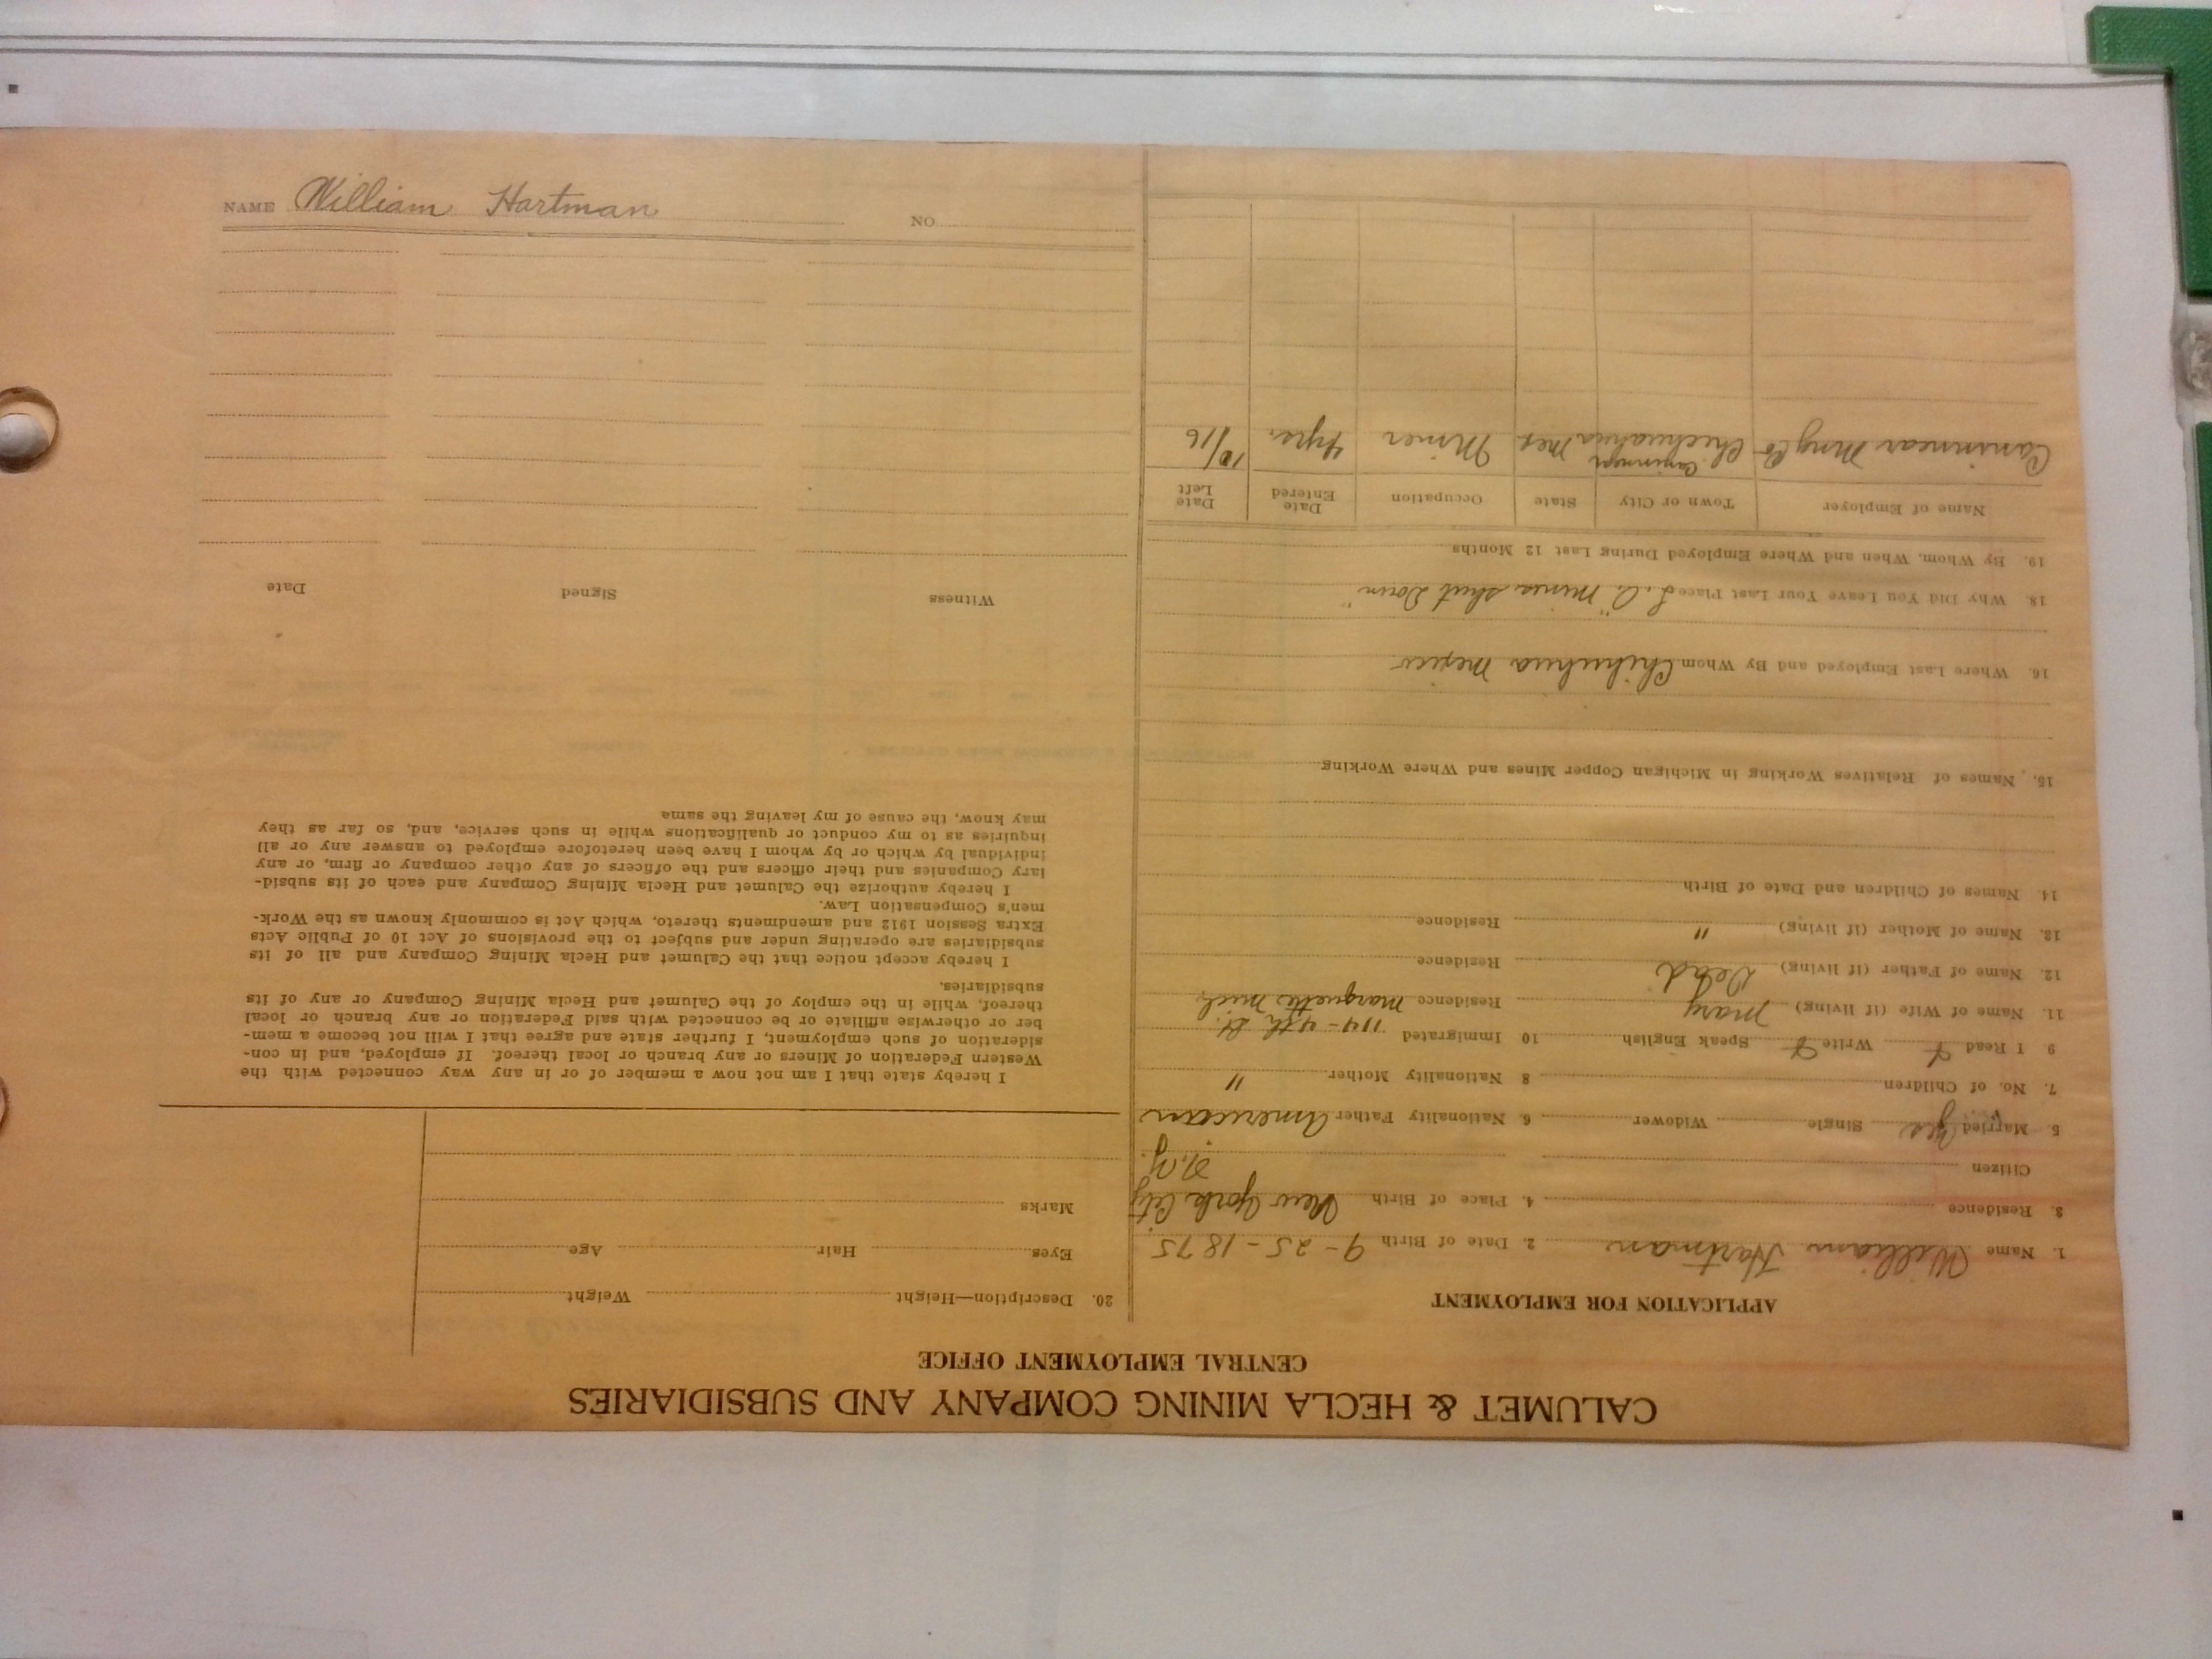 CALUMET & HECLA MINING COMPANY AND SUBSIDIARIES
CENTRAL EMPLOYMENT OFFICE
APPLICATION FOR EMPLOYMENT
1. Name William Hartman 2. Date of Birth 9-25-1875
3. Residence 4. Place of Birth New York City
Citizen N.Y.
5 Married Yes Single Widower 6. Nationality Father American
7. No. of Children 8 Nationality Mother "
9 I Read Write Speak English 10 Immigrated 114-4th St.
11. Name of Wife (if living) Mary Residence Marquette Mich
12. Name of Father (if living) Dead Residence
13. Name of Mother (if living) " Residence
14. Names of Children and Date of Birth
15. Names of Relatives Working in Michigan Copper Mines and Where Working
16. Where Last Employed and By Whom Chihuhua Mexico
18. Why Did You Leave Your Last Place "Mines Shut Down"
19. By Whom, When and Where Employed During Last 12 Months
Name of Employer Town or City State Occupation Date Entered Date Left
Mng Co Mex Miner 4 yrs. 10/16
20. Description—Height Weight
Eyes Hair Age
Marks
I hereby state that I am not now a member of or in any way connected with the
Western Federation of Miners or any branch or local thereof. If employed, and in con-
sideration of such employment, I further state and agree that I will not become a mem-
ber or otherwise affiliate or be connected with said Federation or any branch or local
thereof, while in the employ of the Calumet and Hecla Mining Company or any of its
subsidiaries.
I hereby accept notice that the Calumet and Hecla Mining Company and all of its
subsidiaries are operating under and subject to the provisions of Act 10 of Public Acts
Extra Session 1912 and amendments thereto, which Act is commonly known as the Work-
men's Compensation Law.
I hereby authorize the Calumet and Hecla Mining Company and each of its subsid-
iary Companies and their officers and the officers of any other company or firm, or any
individual by which or by whom I have been heretofore employed to answer any or all
inquiries as to my conduct or qualifications while in such service, and, so far as they
may know, the cause of my leaving the same
Witness Signed Date
NAME William Hartman NO